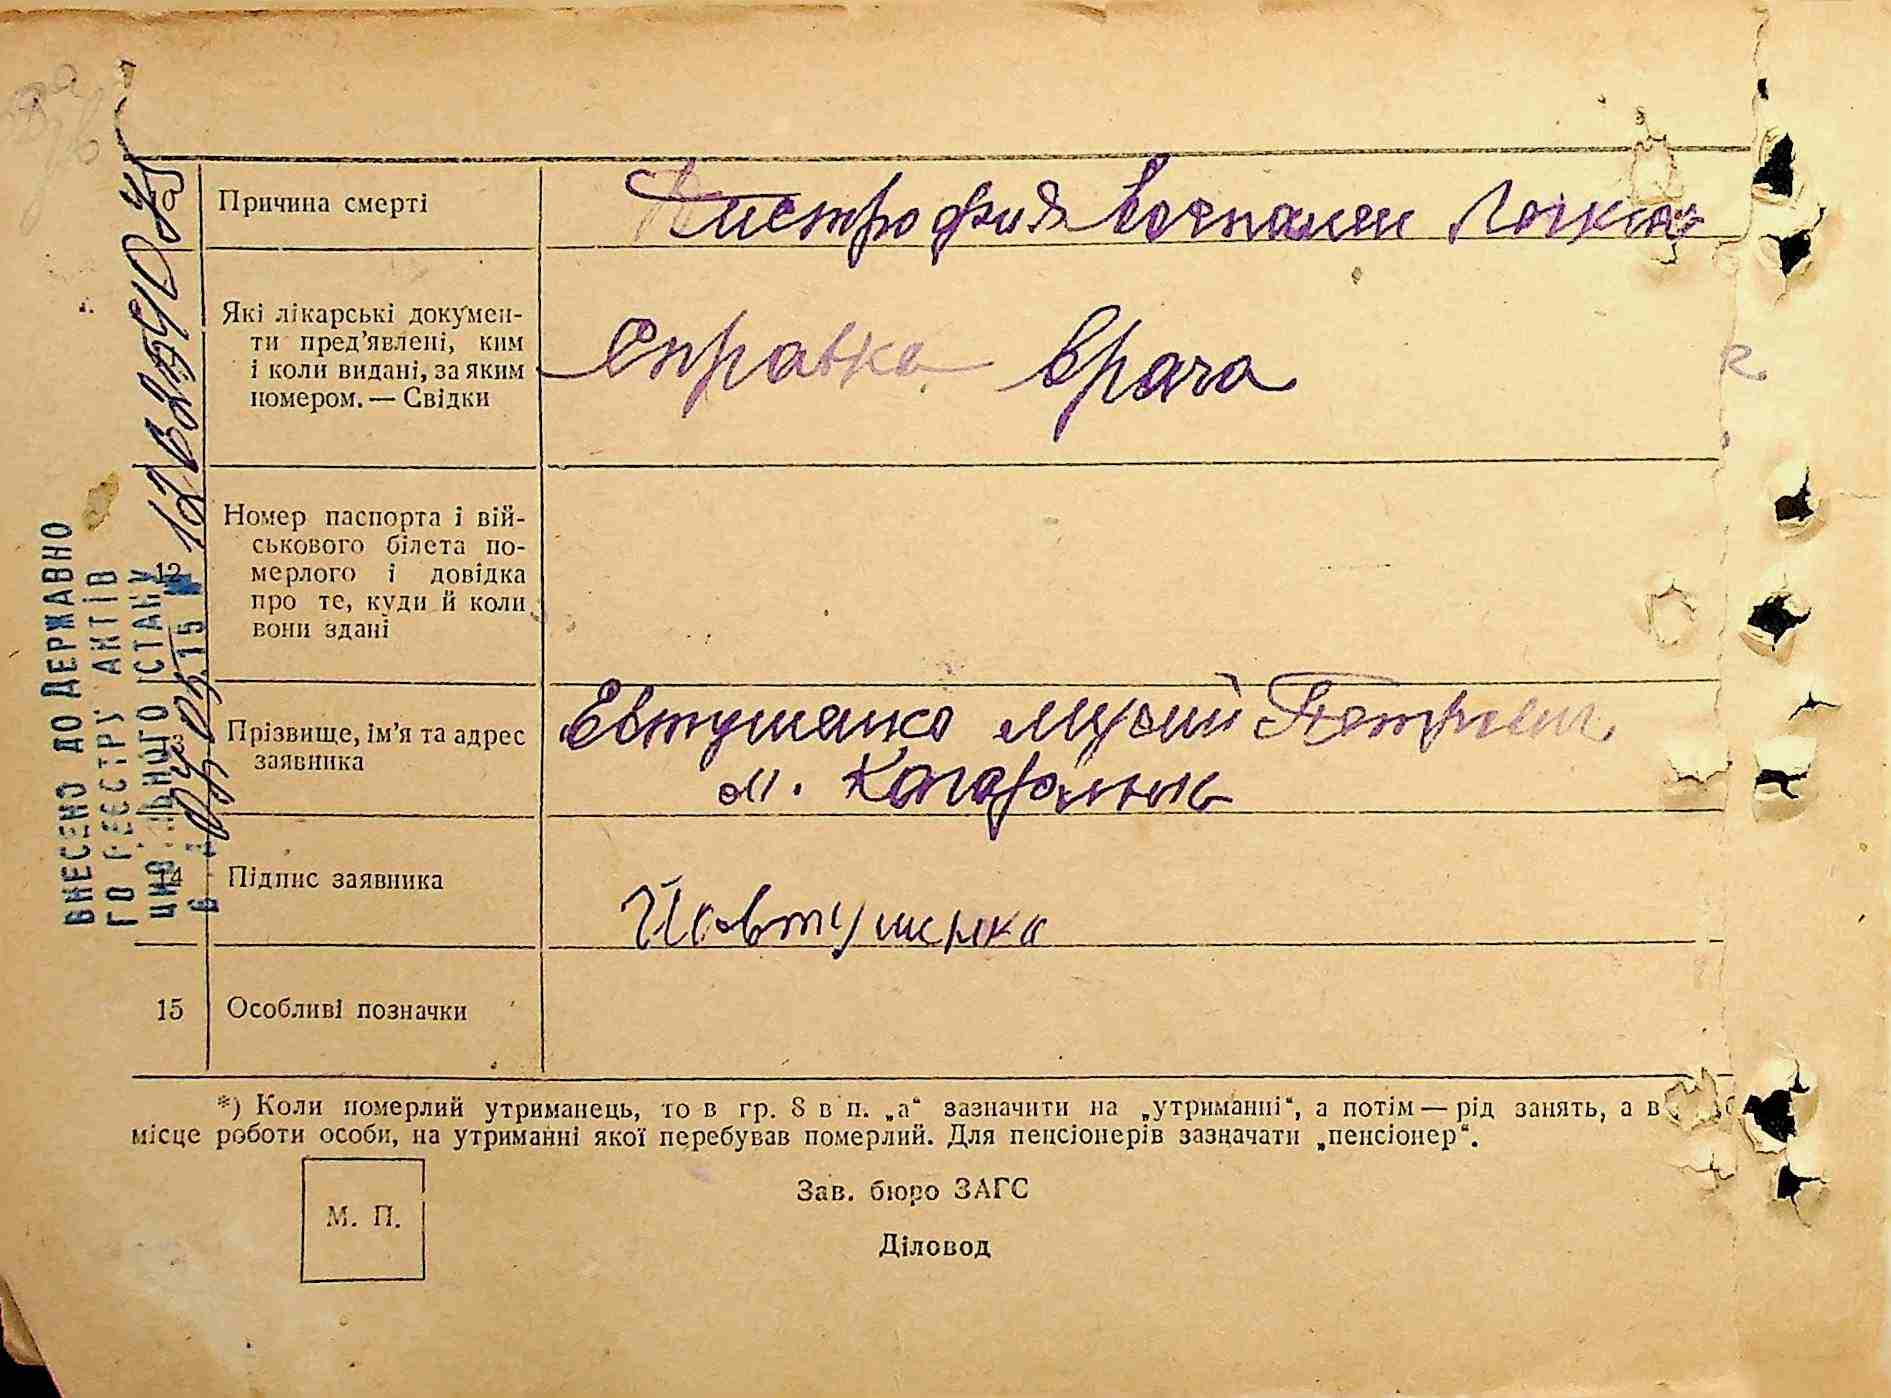 10 Причина смерті
Дистрофия воспален легких
Які лікарські докумен-
ти пред’явлені, ким
і коли видані, за яким
номером. — Свідки
Справка врача
12 Номер паспорта і вій-
ськового білета по-
мерлого і довідка
про те, куди й коли
вони здані
Прізвище, ім’я та адрес
заявника
Евтушенко Мусий Петрович
м. Кагарлык
14 Підпис заявника
15 Особливі позначки
*) Коли померлий утриманець, то в гр. 8 в п. „а“ зазначити на „утриманні“, а потім — рід занять, а в
місце роботи особи, на утриманні якої перебував померлий. Для пенсіонерів зазначати „пенсіонер“.
М. П.
Зав. бюро ЗАГС
Діловод
ВНЕСЕНО ДО ДЕРЖАВНО
ГО РЕЕСТРУ АКТІВ
ЦИВІЛЬНОГО СТАНУ